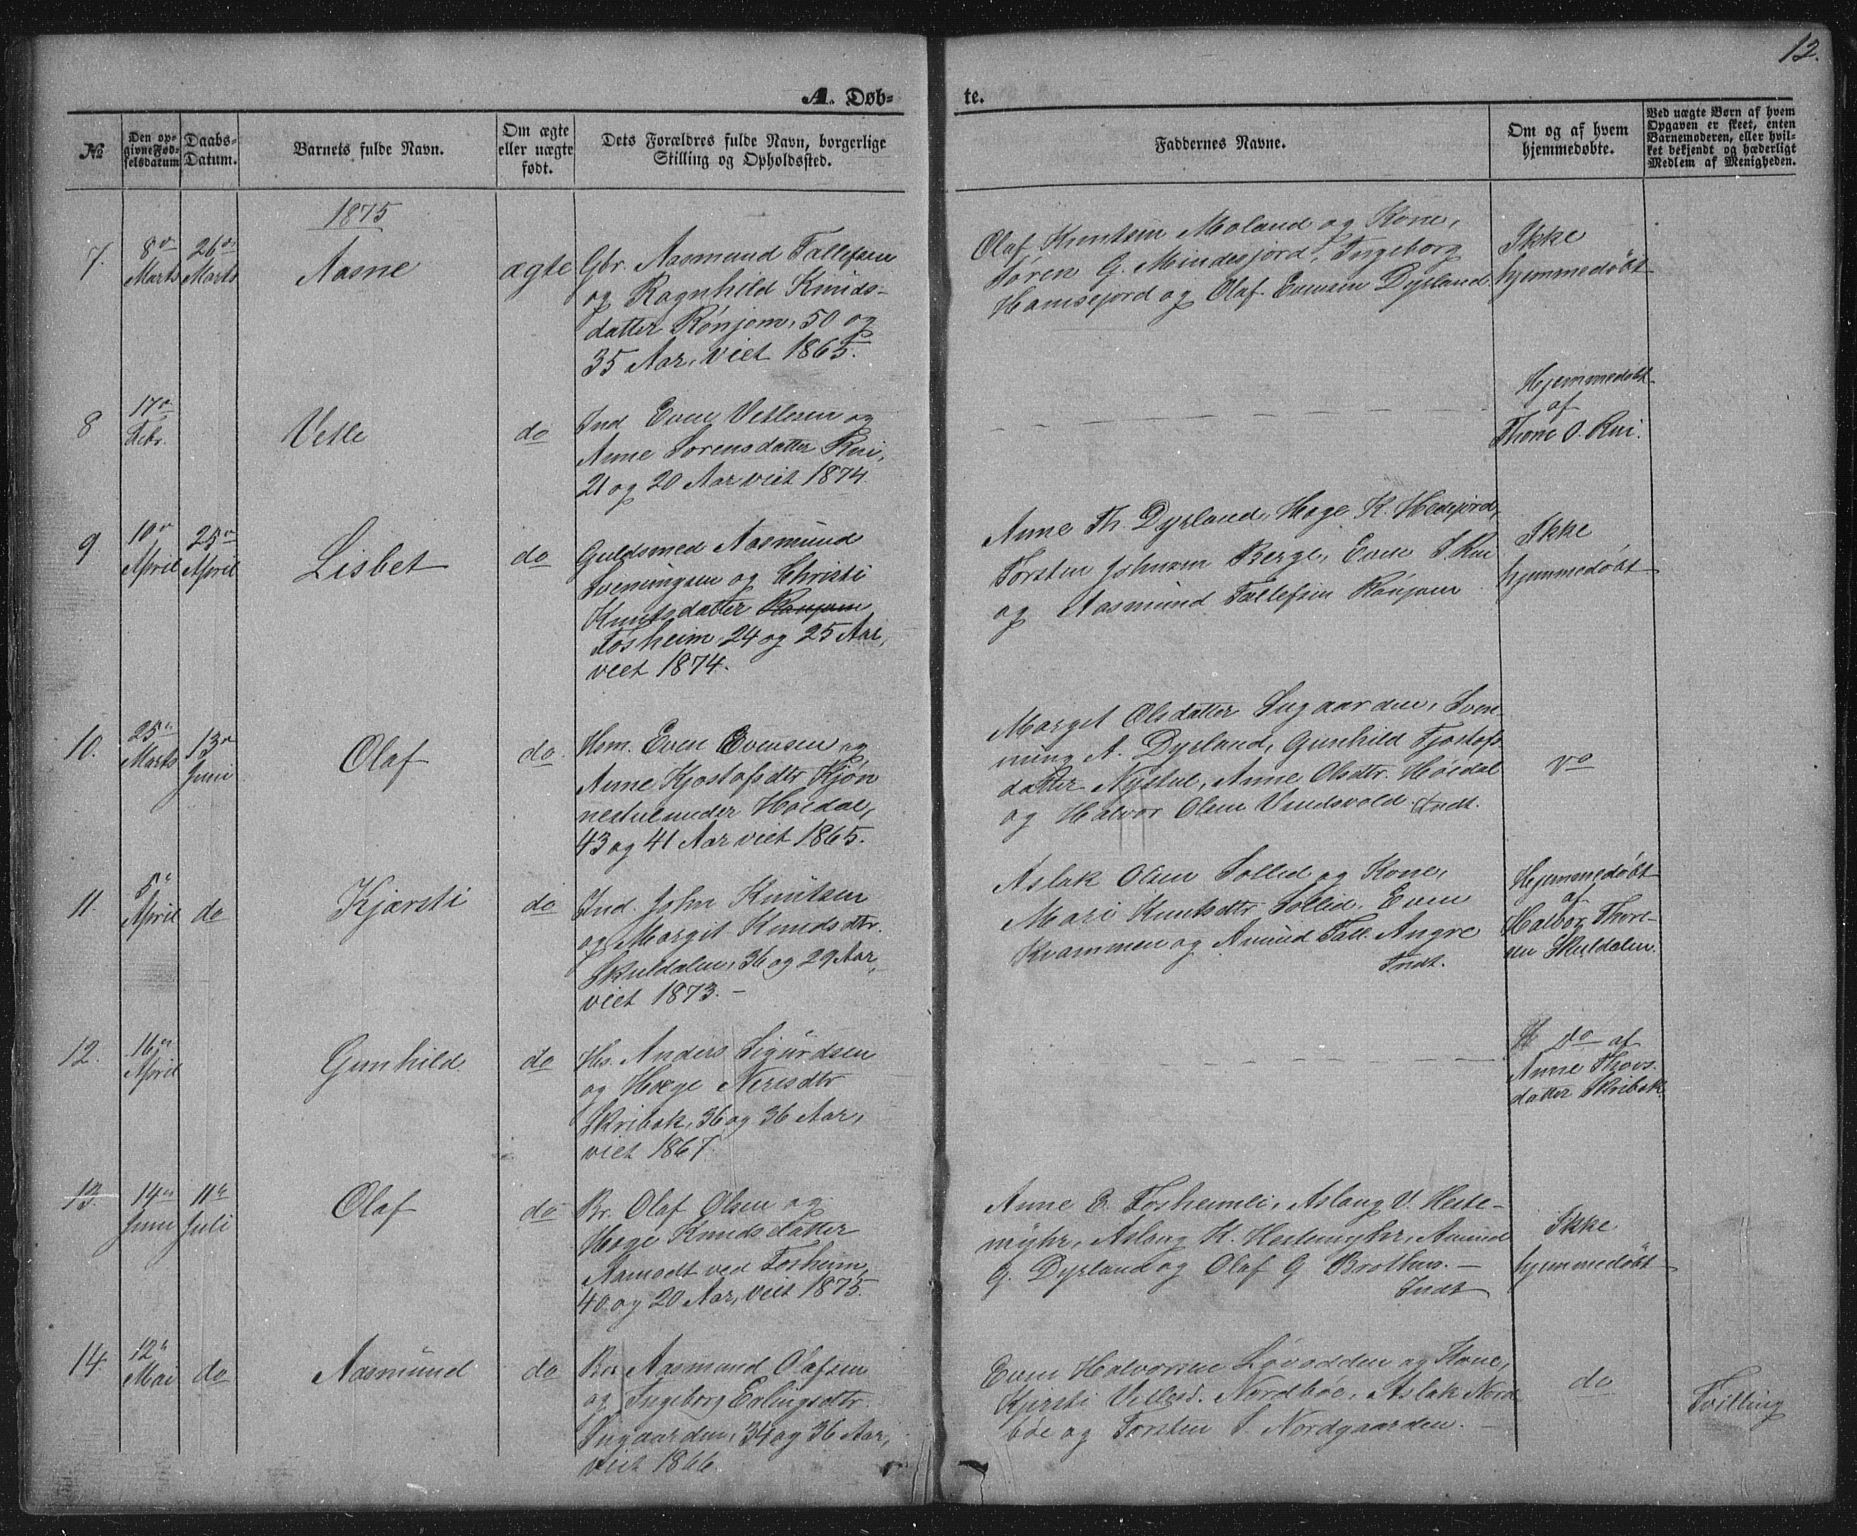 12.
A. Døb-
te.
№
Den op-
givne Fød-
selsdatum
Daabs-
Datum.
Barnets fulde Navn.
Om ægte
eller uægte
født.
Dets Forældres fulde Navn, borgerlige
Stilling og Opholdssted.
Faddernes Navne.
Om og af hvem
hjemmedøbte.
Ved uægte Børn af hvem
Opgaven er skeet, enten
Barnemoderen, eller hvil-
ket bekjendt og hæderligt
Medlem af Menigheden.
1875
7.
8de
Marts
26de
Marts
Aasne
ægte
Gbr. Aasmund Tallefsen
og Ragnhild Knuds-
datter Rønjom, 50 og
35 Aar, viet 1865.
Olaf Knutsen Moland og Kone,
Søren G. Mindesjord, Ingeborg
Hamsejord og Olaf Evensen Dyrland
Ikke
hjemmedøbt
8
17de
Febr.
Vetle
do
Ind Even Vetlesen og
Anne Sørensdatter Rui,
21 og 20 Aar viet 1874
Hjemmedøbt
af
Thone O. Rui.
9
10de
April
25de
April
Lisbet
do
Guldsmed Aasmund
Sveningsen og Christi
Knutsdatter Rønjom
Fosheim 24 og 25 Aar,
viet 1874.
Anne Th. Dyrland, Hæge K. Hedejord,
Torsten Johnsen Berge, Even S Rui
og Aasmund Tallefsen Rønjom
Ikke
hjemmedøbt
10.
25de
Marts
13de
Juni
Olaf
do.
Hsm. Even Evensen og
Anne Kjostofsdtr Kjøn
nestul under Høidal,
43 og 41 Aar viet 1865.
Margit Olsdatter Sugaarden, Sven-
nung A. Dyrland, Gunhild Tjostofs
datter Nystul, Anne Olsdtr. Høidal
og Halvor Olsen Vindsvold. Indt.
do
11.
5te
April
do
Kjærsti
do
Ind. John Knutsen
og Margit Knudsdtr.
Skuldalen, 36 og 29 Aar,
viet 1873. -
Aslak Olsen Sollid og Kone,
Mari Knutsdtr Sollid. Even
Kvammen og Amund Tall. Angre
Indt.
Hjemmedøbt
af
Halvor Thore-
sen Skuldalen.
12.
16de
April
Gunhild
do
Hs. Anders Sigurdsen
og Hæge Nerisdtr
Skribok, 36 og 36 Aar,
viet 1867.
do af
Anne Thovs
datter Skribok
13.
14de
Juni
11te
Juli
Olaf
do
Br. Olaf Olsen og
Hæge Knudsdatter
Aamodt ved Fosheim,
40 og 20 Aar, viet 1875.
Anne E. Fosheimli, Aslaug V. Heste-
myhr, Aslaug K. Hestemyhr, Amund
G. Dyrland og Olaf G Brothus. -
Indt
Ikke
hjemmedøbt
14.
12te
Mai
do
Aasmund
do
Br. Aasmund Olafsen
og Ingeborg Erlingsdtr.
Sugaarden, 34 og 36 Aar,
viet 1866
Even Halvorsen Løvodden og Kone,
Kjersti Vetlesd. Nordbøe, Aslak Nord
bøe og Torsten S Nordgaarden. -
do
Tvilling